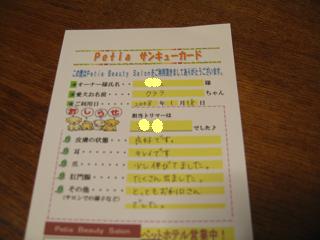 Petia サンキューカード
この度はPetia Beauty Salonをご利用頂きましてありがとうございます。
オーナー様氏名・・ 様
愛犬お名前・・・・ クッキ ちゃん
ご利用日・・・・・ 2008年 1月18日
おしらせ
担当トリマーは
でした♪
皮膚の状態・・ 良好です。
耳・・・・・・ キレイです
爪・・・・・・ 少し伸びてました。
肛門腺・・・・ たくさん出ました。
その他・・・・ とってもおりこうさん
(サロンでの様子など) でした。
Petia Beauty Salon
ペットホテル営業中!